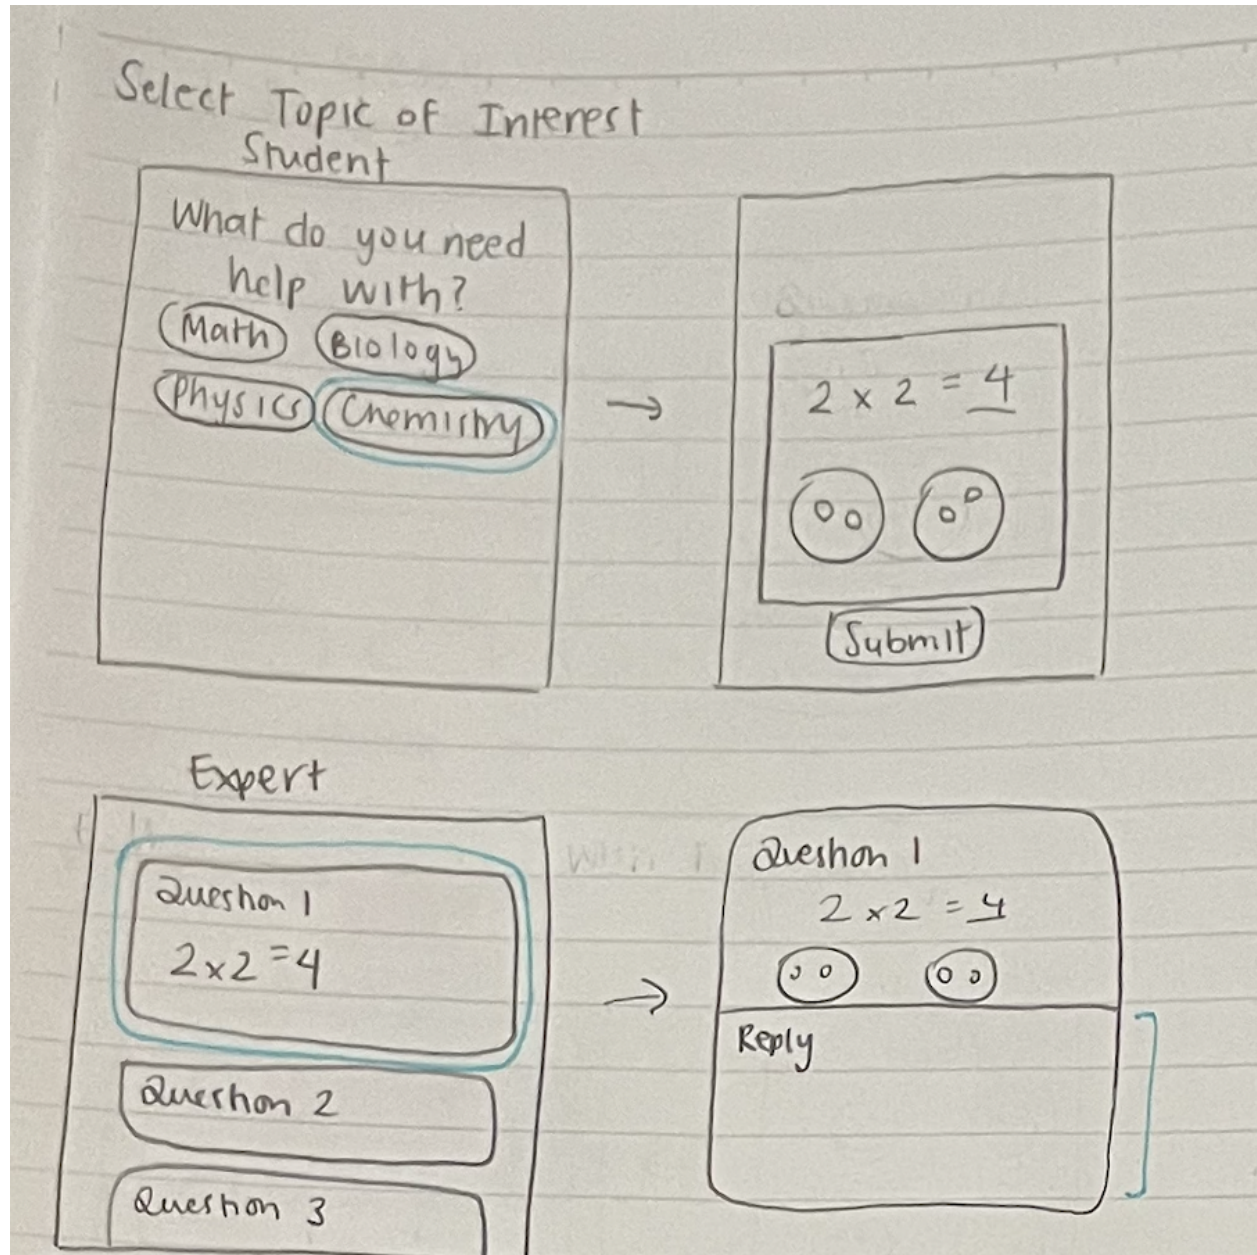 Select Topic of Interest
Student
What do you need
help with?
Math Biology
Physics Chemistry
2 x 2 = 4
Submit
Expert
Question 1
2x2=4
Question 2
Question 3
Question 1
2 x2 = 4
Reply